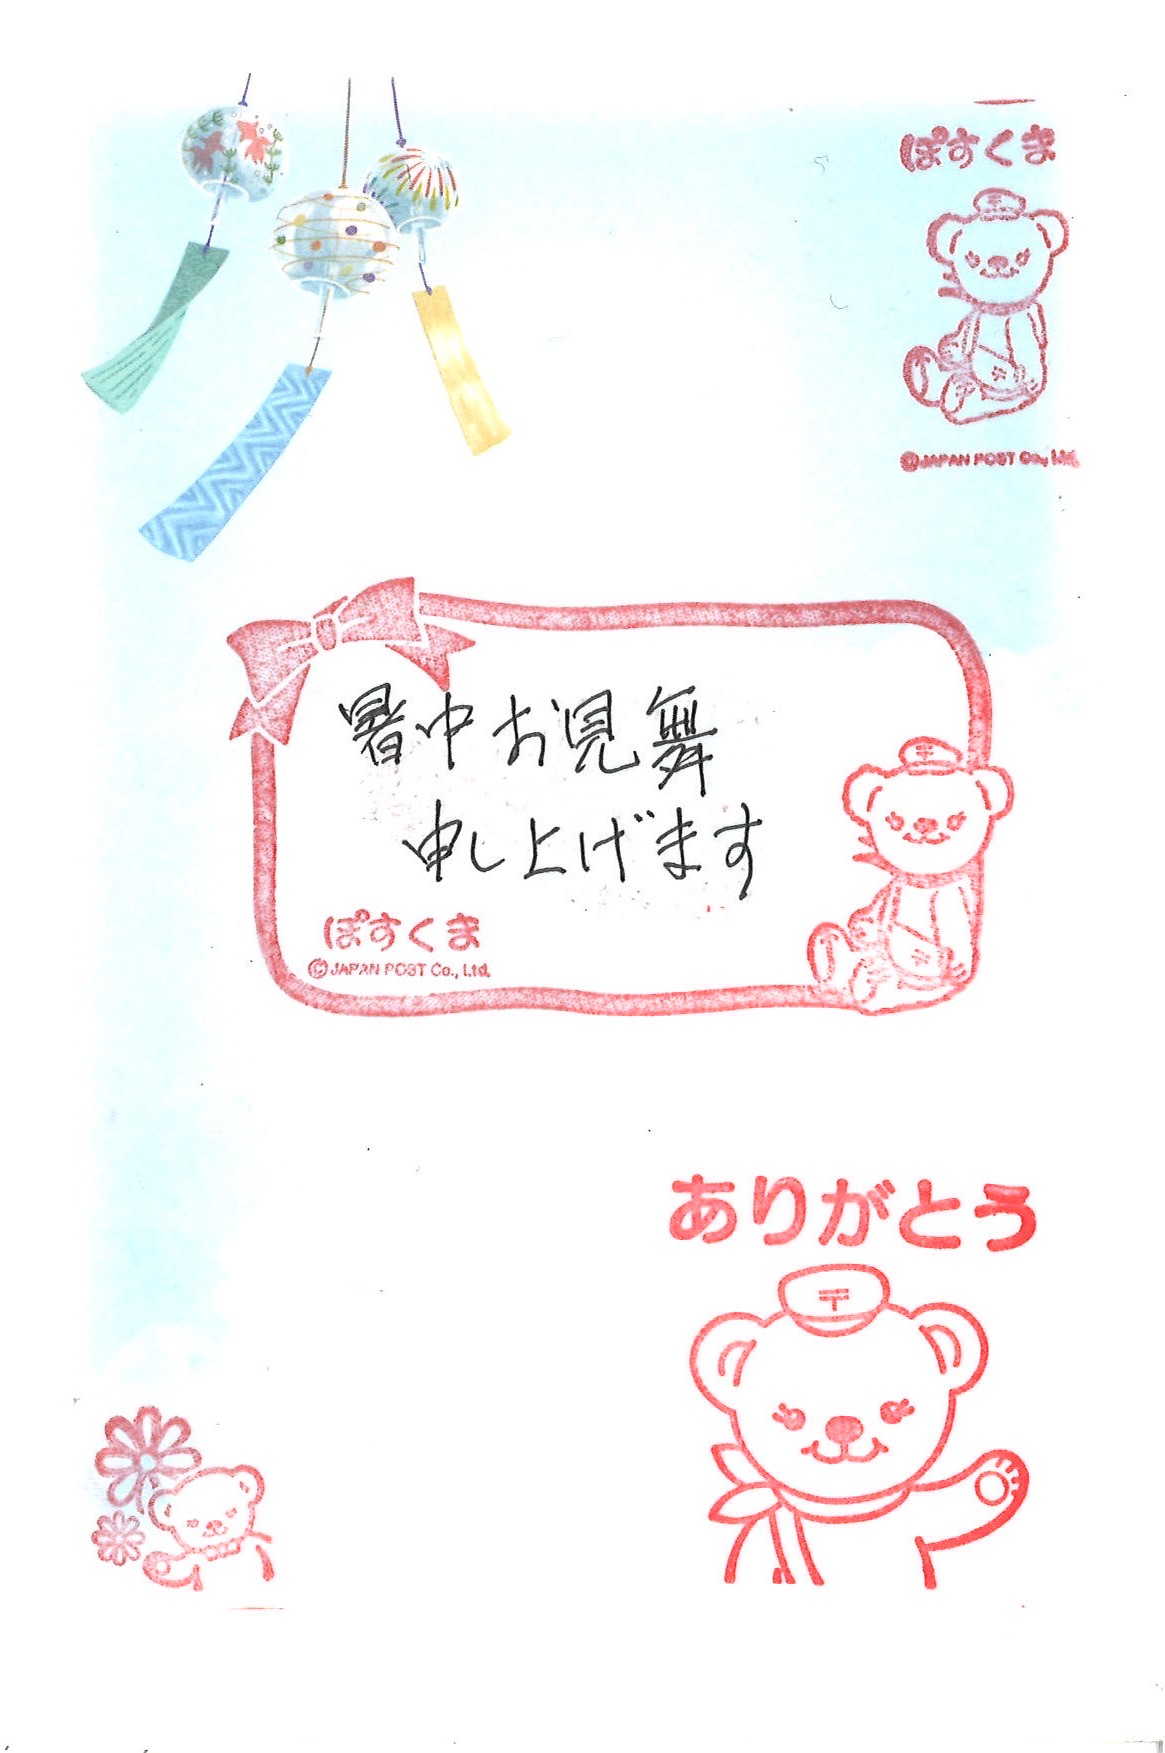 ぽすくま
©JAPAN POST Co., Ltd.
暑中お見舞
申し上げます
ぽすくま
©JAPAN POST Co., Ltd.
ありがとう